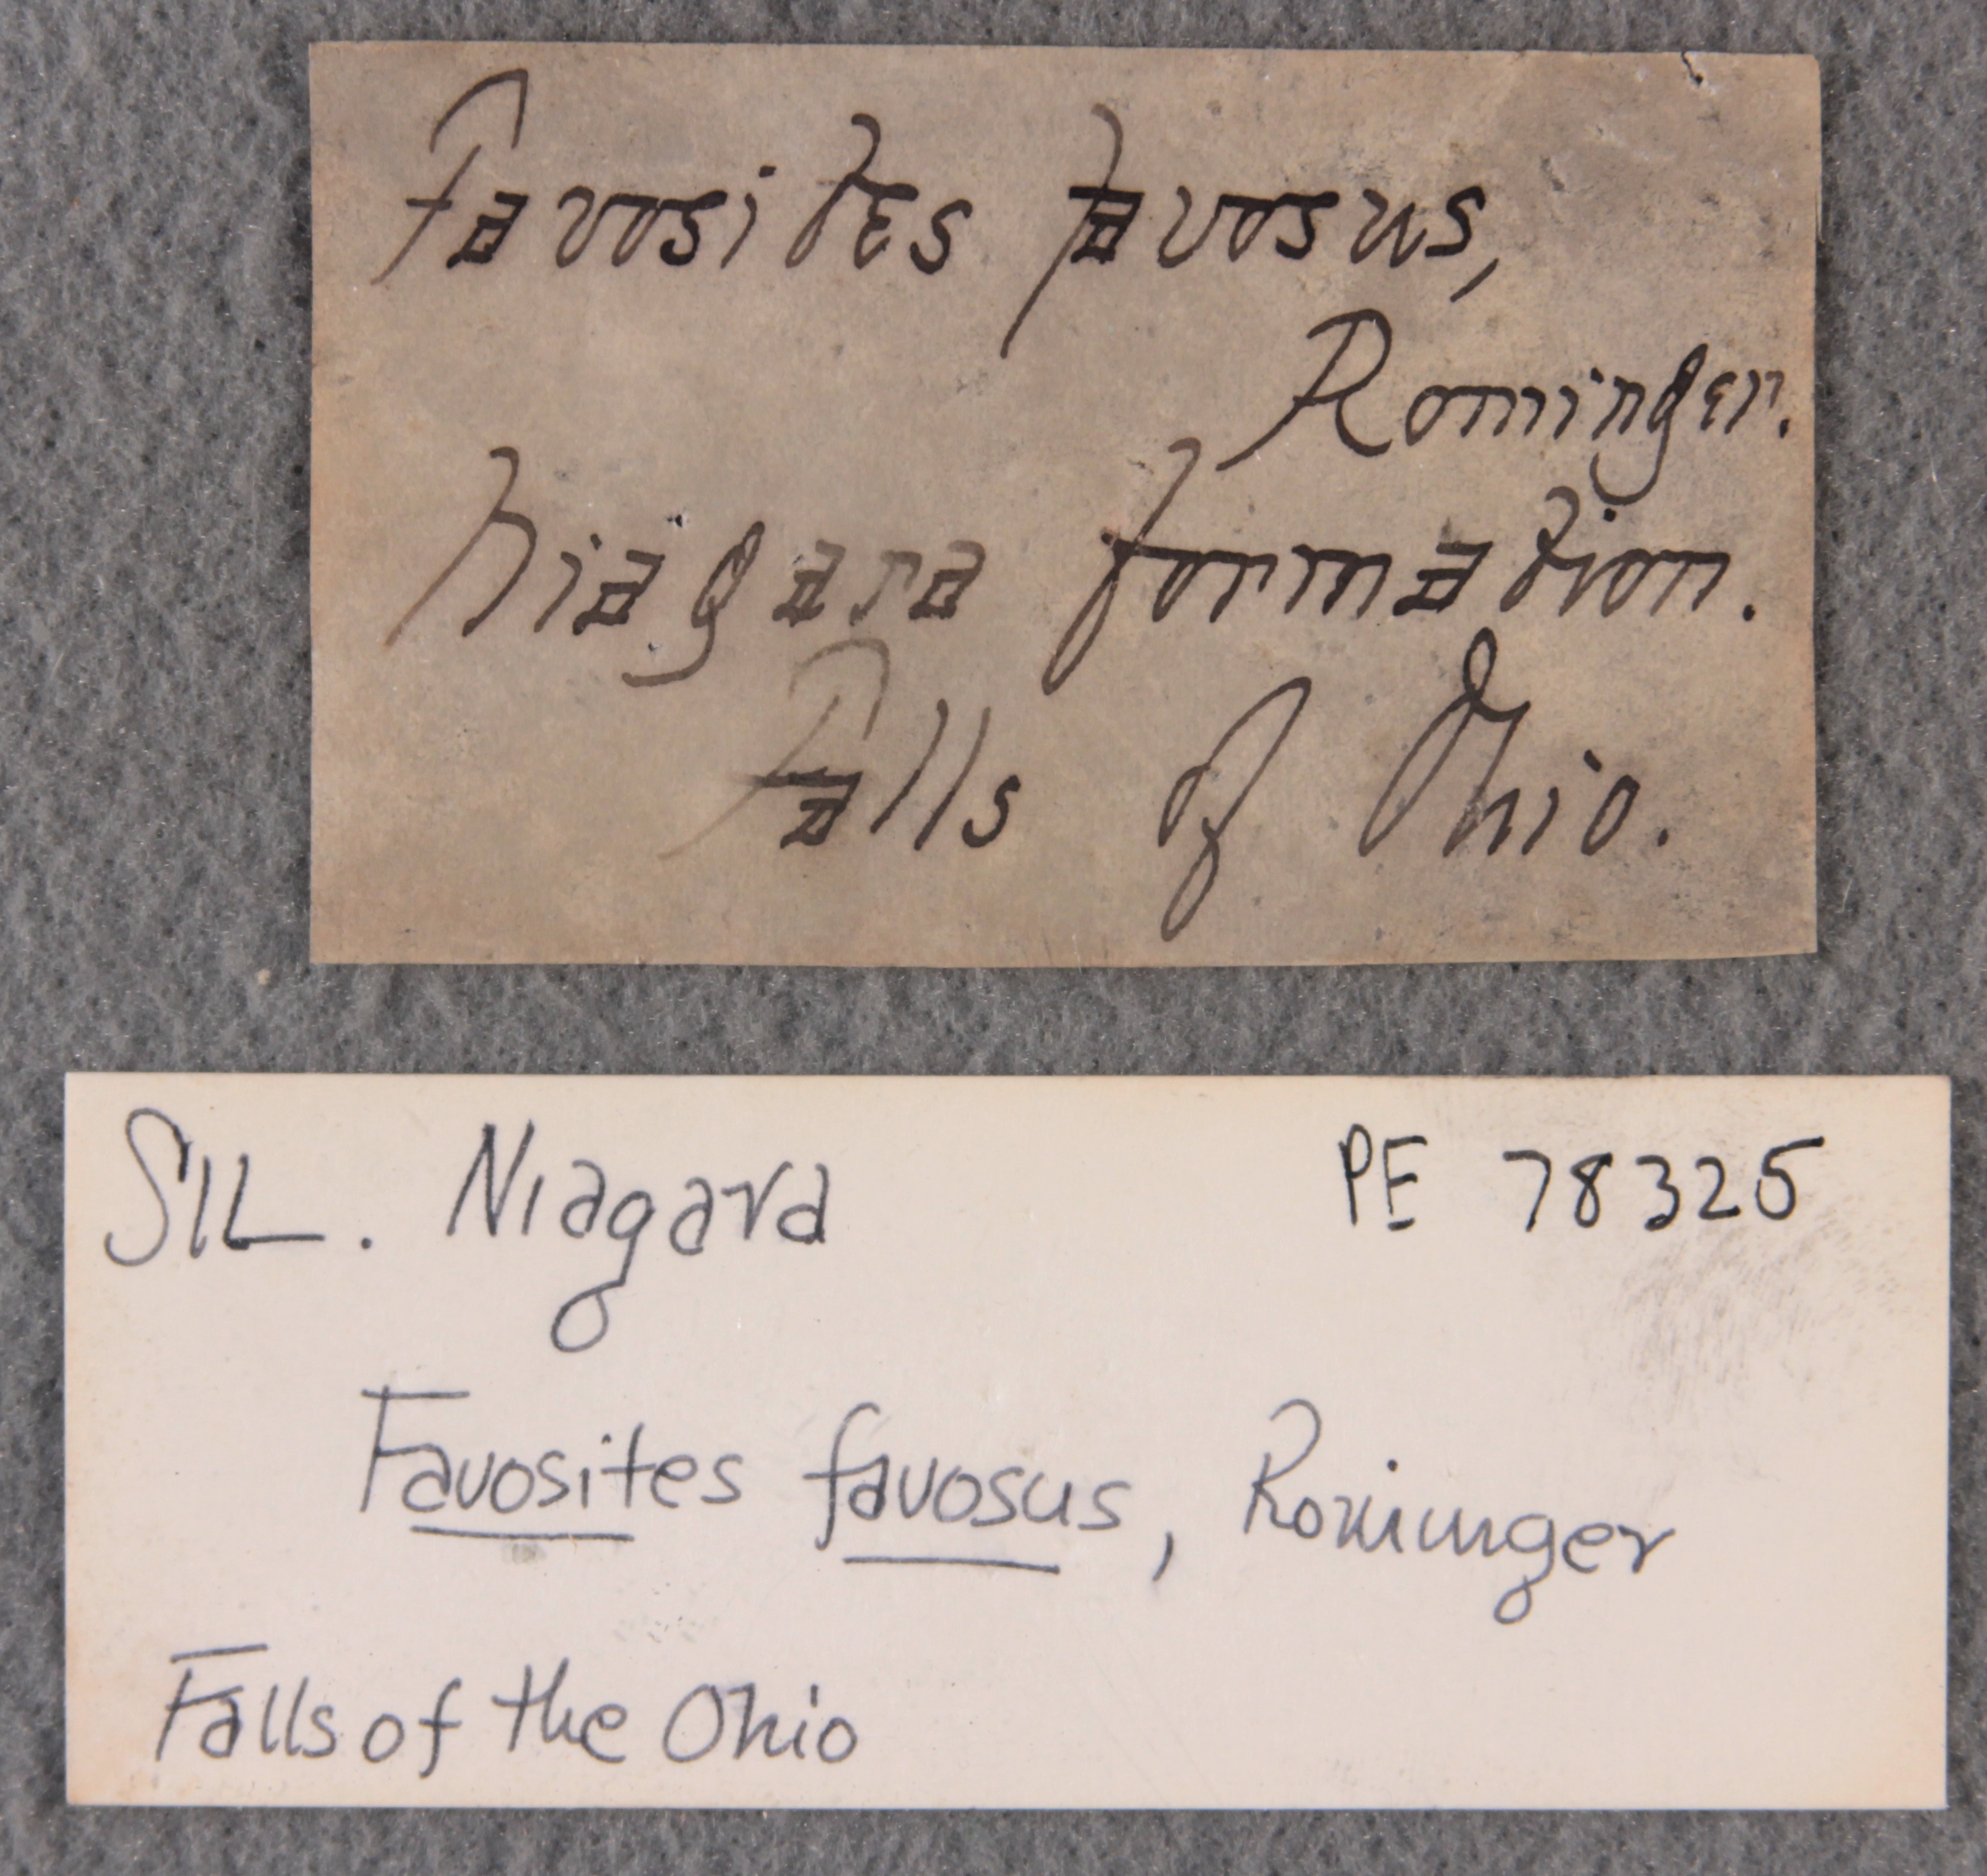 Favosites favosus,
Rominger.
Niagara formation.
Falls of Ohio.
SIL. Niagara PE 78325
Favosites favosus, Rominger
Falls of the Ohio